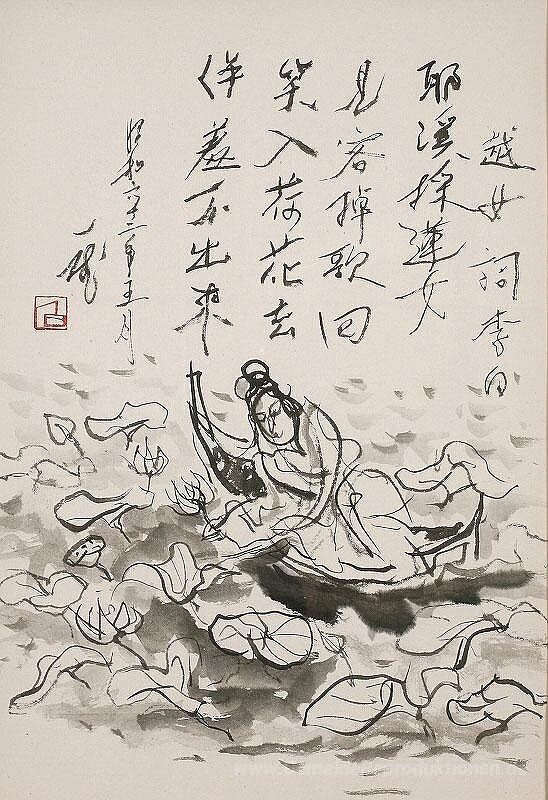 越女詞 李白
耶溪採蓮女
見客棹歌回
笑入荷花去
佯羞不出來
昭和六十二年五月